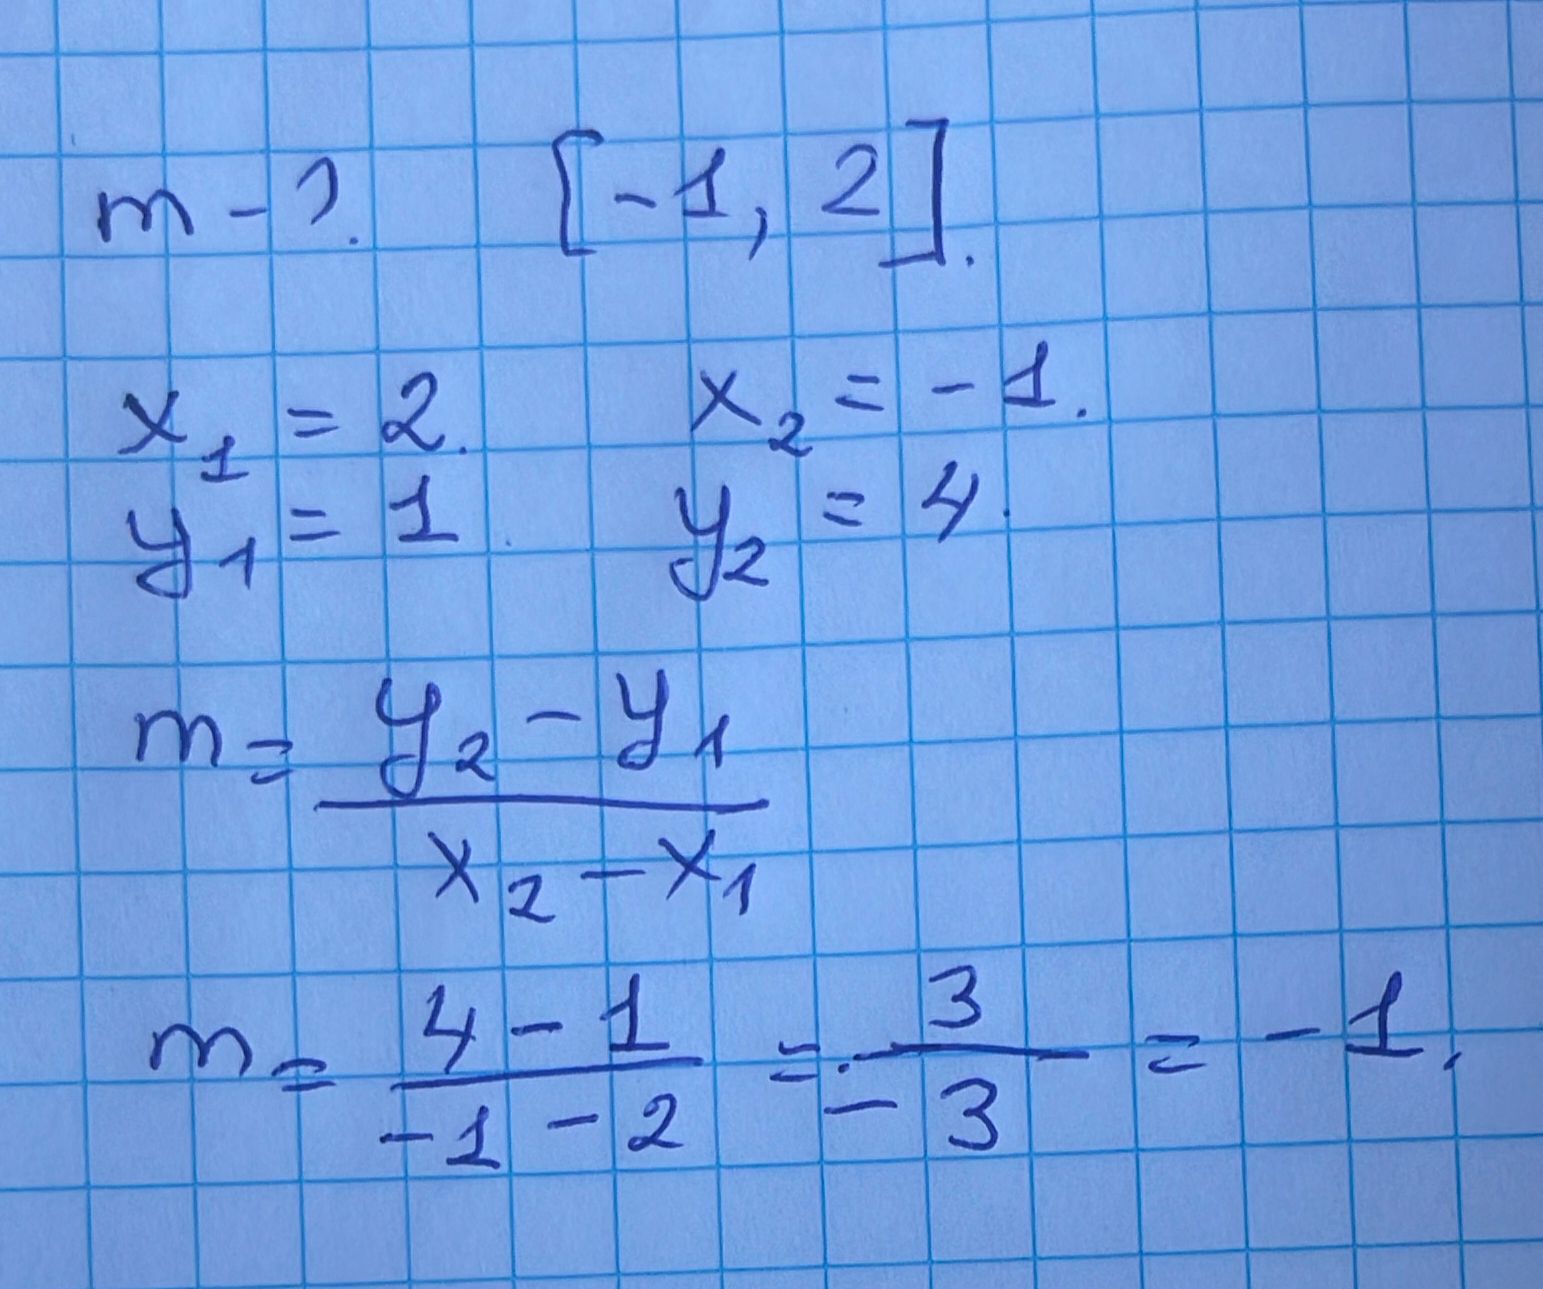 m - ? [-1, 2].
x₁ = 2. x₂ = -1.
y₁ = 1. y₂ = 4.
m = (y₂ - y₁) / (x₂ - x₁)
m = (4 - 1) / (-1 - 2) = 3 / (-3) = -1.